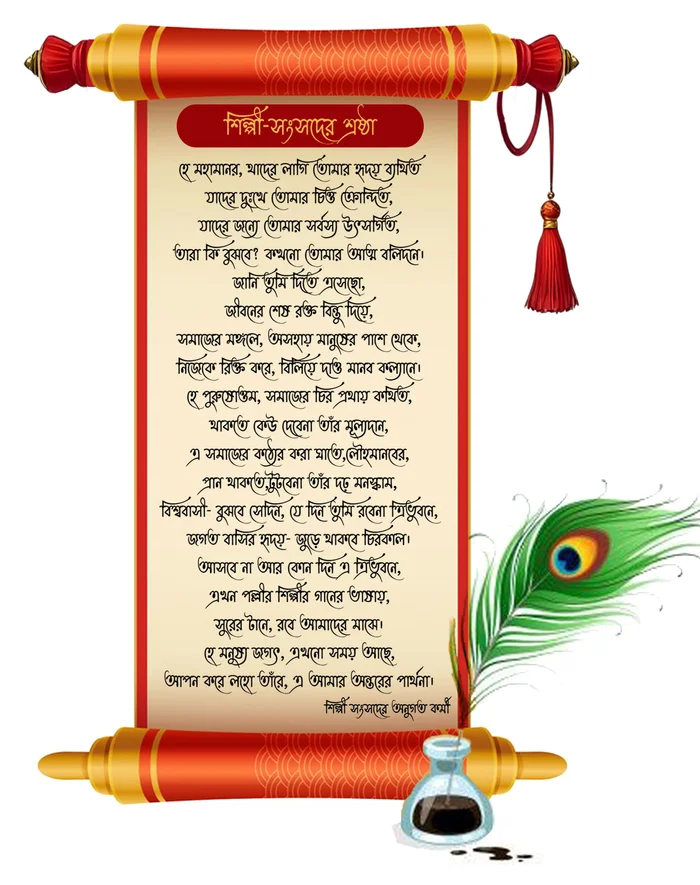 শিল্পী-সংসদের শ্রষ্ঠা
হে মহামানর, যাদের লাগি তোমার হৃদয় ব্যথিত
যাদের দুঃখে তোমার চিত্ত ক্রোন্দিত,
যাদের জন্যে তোমার সর্বস্য উৎসর্গিত,
তারা কি বুঝবে? কখনো তোমার আত্ম বলিদান।
জানি তুমি দিতে এসেছো,
জীবনের শেষ রক্ত বিন্তু দিয়ে,
সমাজের মঙ্গলে, অসহায় মানুষের পাশে থেকে,
নিজেকে রিক্ত করে, বিলিয়ে দাও মানব কল্যানে।
হে পুরুষোত্তম, সমাজের চির প্রথায় কথিত,
থাকতে কেউ দেবেনা তাঁর মূল্যদান,
এ সমাজের কঠোর করা ঘাতে,লৌহমানবের,
প্রান থাকতে,টুটবেনা তাঁর দৃঢ় মনস্কাম,
বিশ্ববাসী- বুঝবে সেদিন, যে দিন তুমি রবেনা ত্রিভুবনে,
জগত বাসির হৃদয়- জুড়ে থাকবে চিরকাল।
আসবে না আর কোন দিন এ ত্রিভুবনে,
এখন পল্লীর শিল্পীর গানের ভাষায়,
সুরের টানে, রবে আমাদের মাঝে।
হে মনুষ্য জগৎ, এখনো সময় আছে,
আপন করে লহো তাঁরে, এ আমার অন্তরের পার্থনা।
শিল্পী সংসদের অনুগত কর্মী